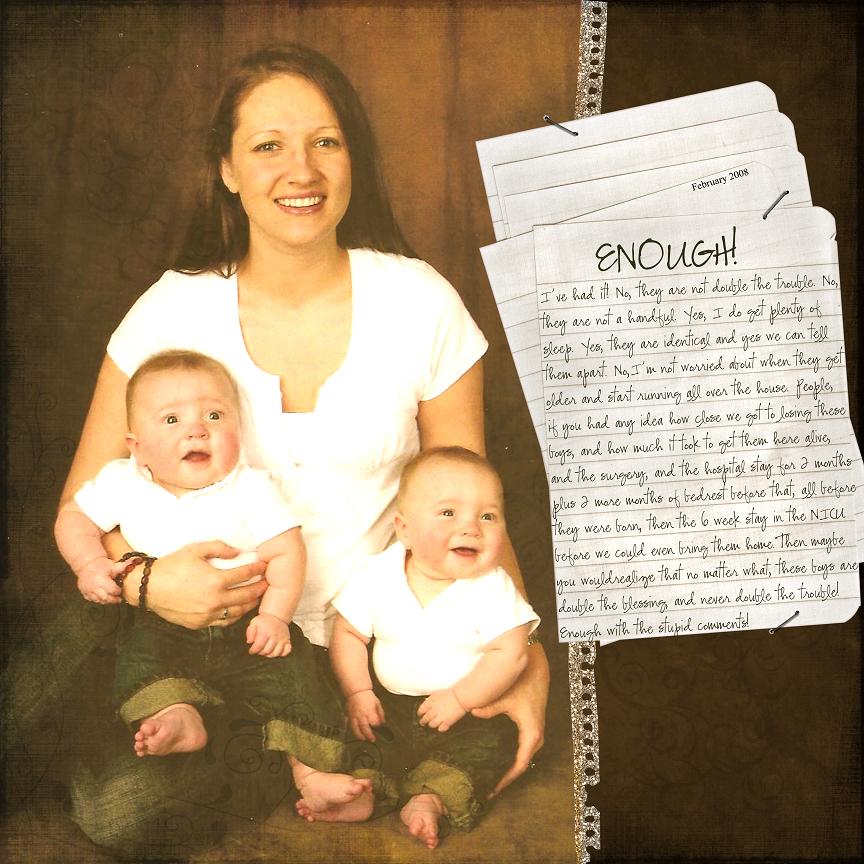 February 2008
ENOUGH!
I've had it! No, they are not double the trouble. No,
they are not a handful. Yes, I do get plenty of
sleep. Yes, they are identical and yes we can tell
them apart. No, I'm not worried about when they get
older and start running all over the house. People,
if you had any idea how close we got to losing these
boys, and how much it took to get them here alive,
and the surgery, and the hospital stay for 2 months
plus 2 more months of bedrest before that, all before
they were born, then the 6 week stay in the NICU
before we could even bring them home. Then maybe
you wouldrealize that no matter what, these boys are
double the blessing and never double the trouble!
Enough with the stupid comments!